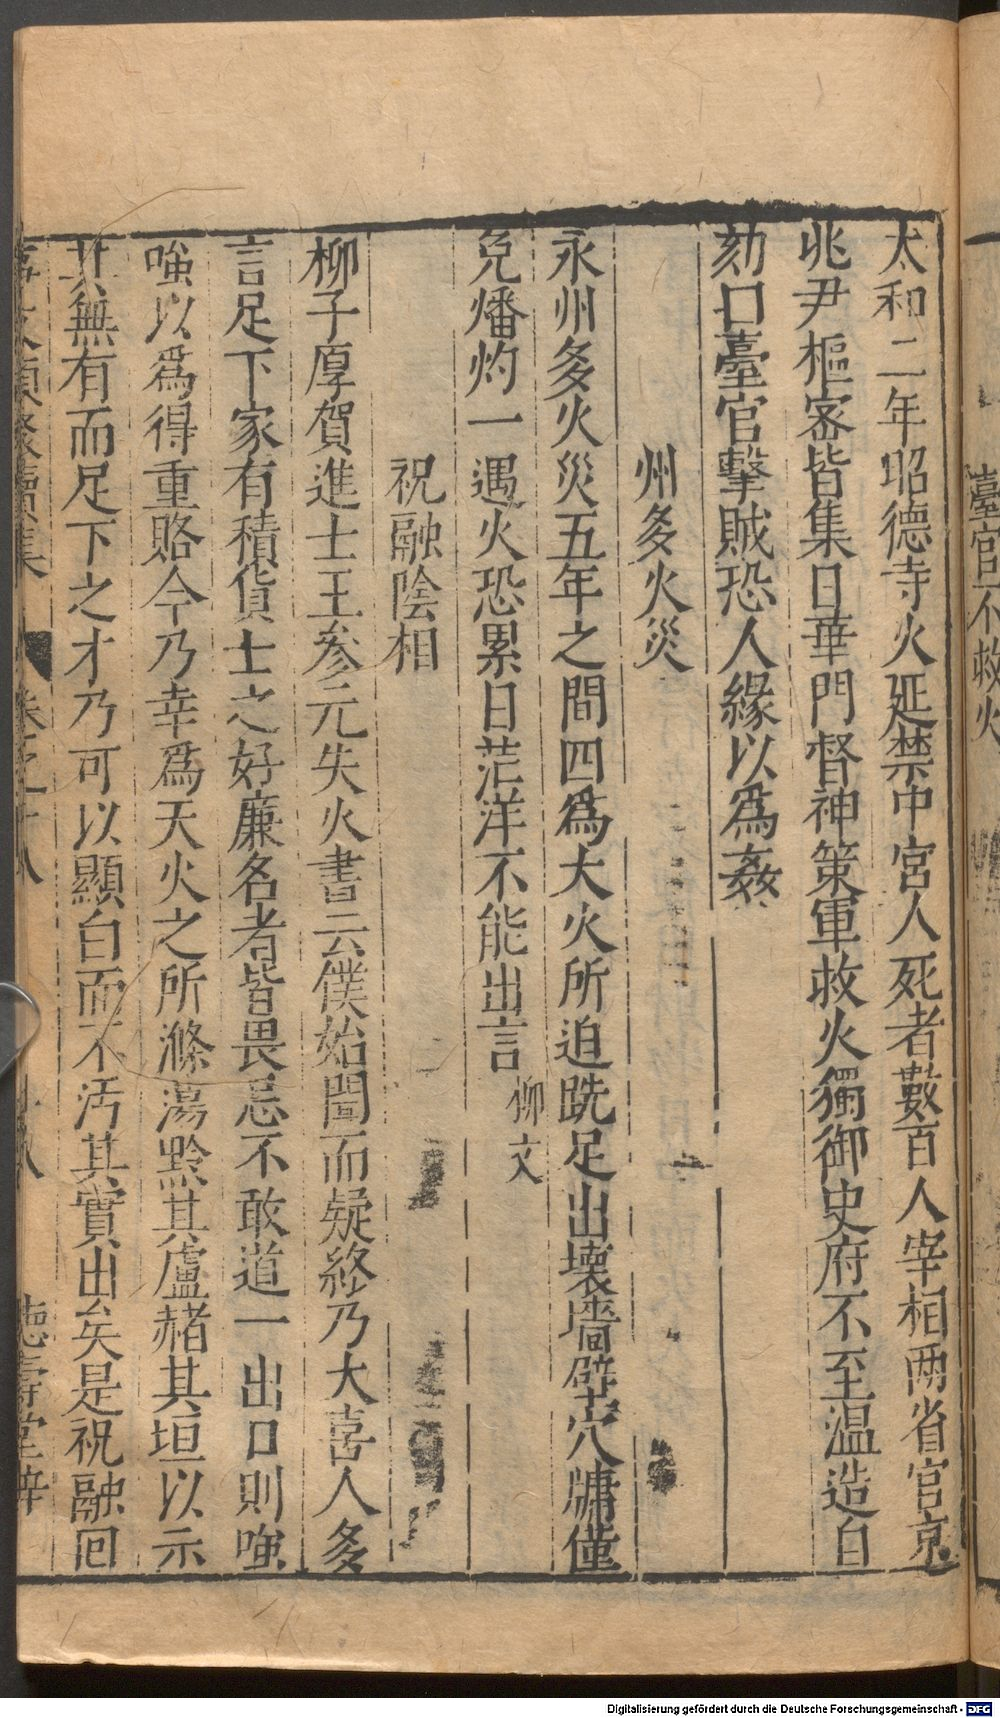 臺官不救火
太和二年昭德寺火延禁中宮人死者數百人宰相兩省官京
兆尹樞宻皆集日華門督神策軍救火獨御史府不至温造自
劾曰臺官擊賊恐人緣以爲姦
州多火災
永州多火災五年之間四爲大火所迫跣足出壞墻壁穴牗僅
免燔灼一遇火恐累日茫洋不能出言 柳文
祝融陰相
柳子厚賀進士王參元失火書云僕始聞而疑終乃大喜人多
言足下家有積貨士之好廉名者皆畏忌不敢道一出口則嗤
嗤以爲得重賂今乃幸爲天火之所滌蕩黔其廬赭其垣以示
其無有而足下之才乃可以顯白而不汚其實出矣是祝融回
事文類聚續集 卷之十八 德壽堂梓
Digitalisierung gefördert durch die Deutsche Forschungsgemeinschaft - DFG